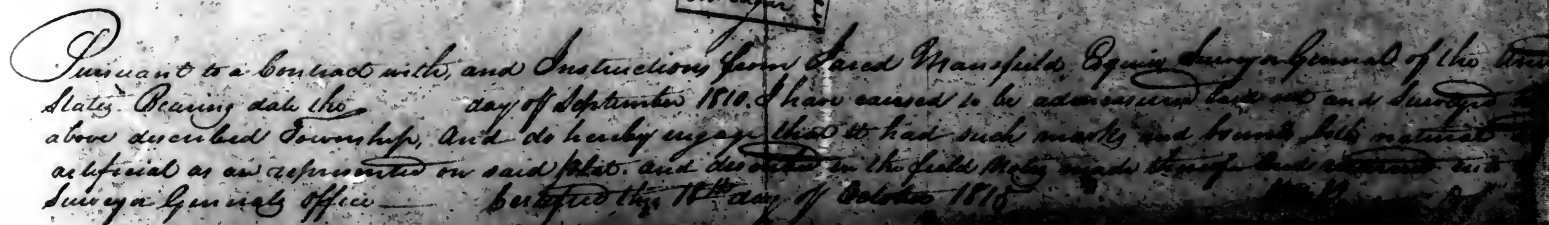 Pursuant to a Contract with, and Instructions from Jared Mansfield, Esquire Surveyor General of the
States Bearing date the day of September 1810. I have caused to be admeasured laid out and Surveyed
above described Township, And do hereby engage that it had such marks and bounds both natural
artificial as are represented on said plat. and described in the field Notes made thereof and returned
Surveyor Generals office Certified this 18th day of October 1810